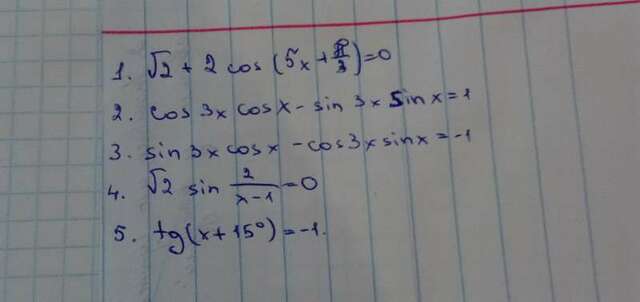 1. √2 + 2 cos (5x + π/3) = 0
2. cos 3x cos x - sin 3x sin x = 1
3. sin 3x cos x - cos 3x sin x = -1
4. √2 sin 2/(x-1) = 0
5. tg(x + 15°) = -1.